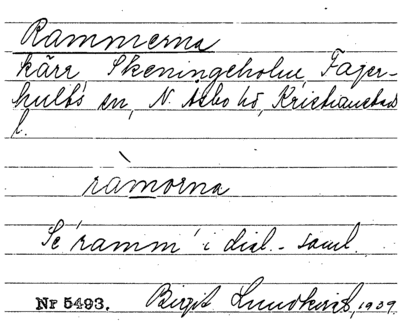 Rammerna
kärr, Skeningeholm, Fager-
hults sn, N. Åsbo hd, Kristianstads
l.
ràmorna
Se 'ramm' i dial.-saml.
Nr 5493. Birgit Lundkvist, 1939.